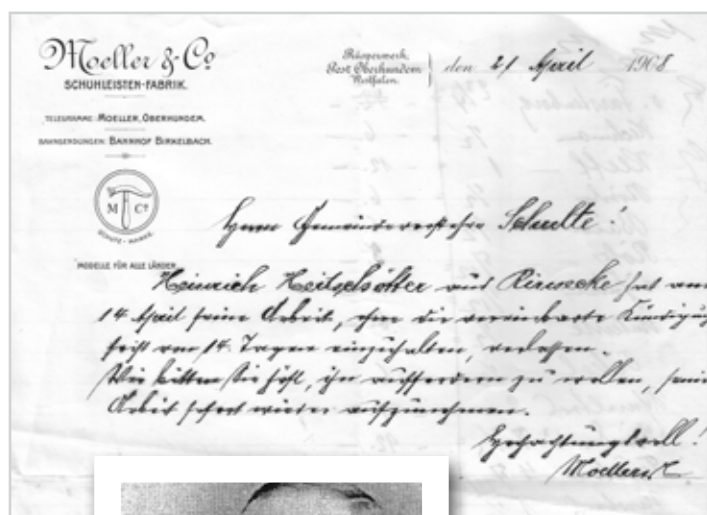 Moeller & Co
SCHUHLEISTEN-FABRIK.
TELEGRAMME: MOELLER, OBERHUNDEM.
BAHNSENDUNGEN: BAHNHOF BIRKELBACH.
M Co
SCHUTZ-MARKE.
MODELLE FÜR ALLE LÄNDER.
Räsperwerk,
Post Oberhundem
Westfalen.
den 21 April 1908
Herrn Gemeindevorsteher Schulte!
Heinrich Heitschötter aus Rinsecke hat am
14 April seine Arbeit, ohne die vereinbarte Kündigungs
frist von 14 Tagen einzuhalten, verlassen.
Wir bitten Sie höfl, ihn auffordern zu wollen, seine
Arbeit sofort wieder aufzunehmen.
Hochachtungsvoll!
Moeller & C